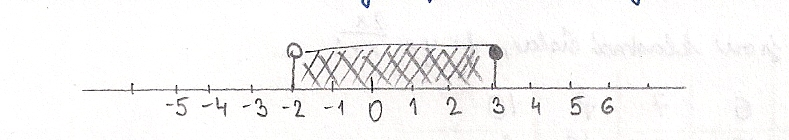 -5 -4 -3 -2 -1 0 1 2 3 4 5 6